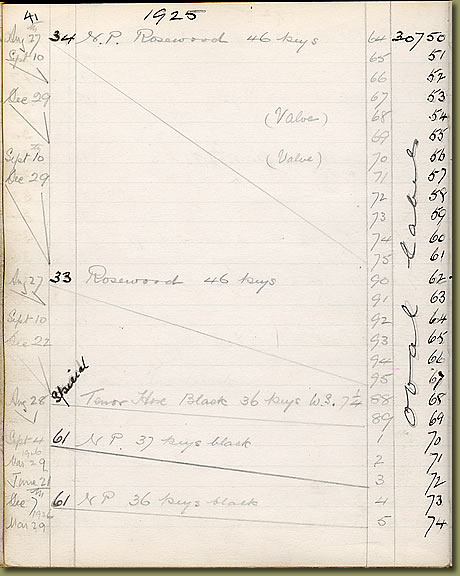 41 1925
Aug 27 34 N.P. Rosewood 46 keys 64 30750
Sept 10 65 51
66 52
Dec 29 67 53
(Valve) 68 54
69 55
Sept 10 (Valve) 70 56
Dec 29 71 57
72 58
73 59
74 60
75 61
Aug 27 33 Rosewood 46 keys 90 62
91 63
Sept 10 92 64
Dec 22 93 65
94 66
95 67
Aug 28 Special Tenor Black 36 keys W.S. 7 1/4 88 68
89 69
Sept 4 61 N.P. 37 keys black 1 70
1926
Mar 29 2 71
June 21 3 72
Dec 7 61 N.P. 36 keys black 4 73
1926
Mar 29 5 74
oval labels